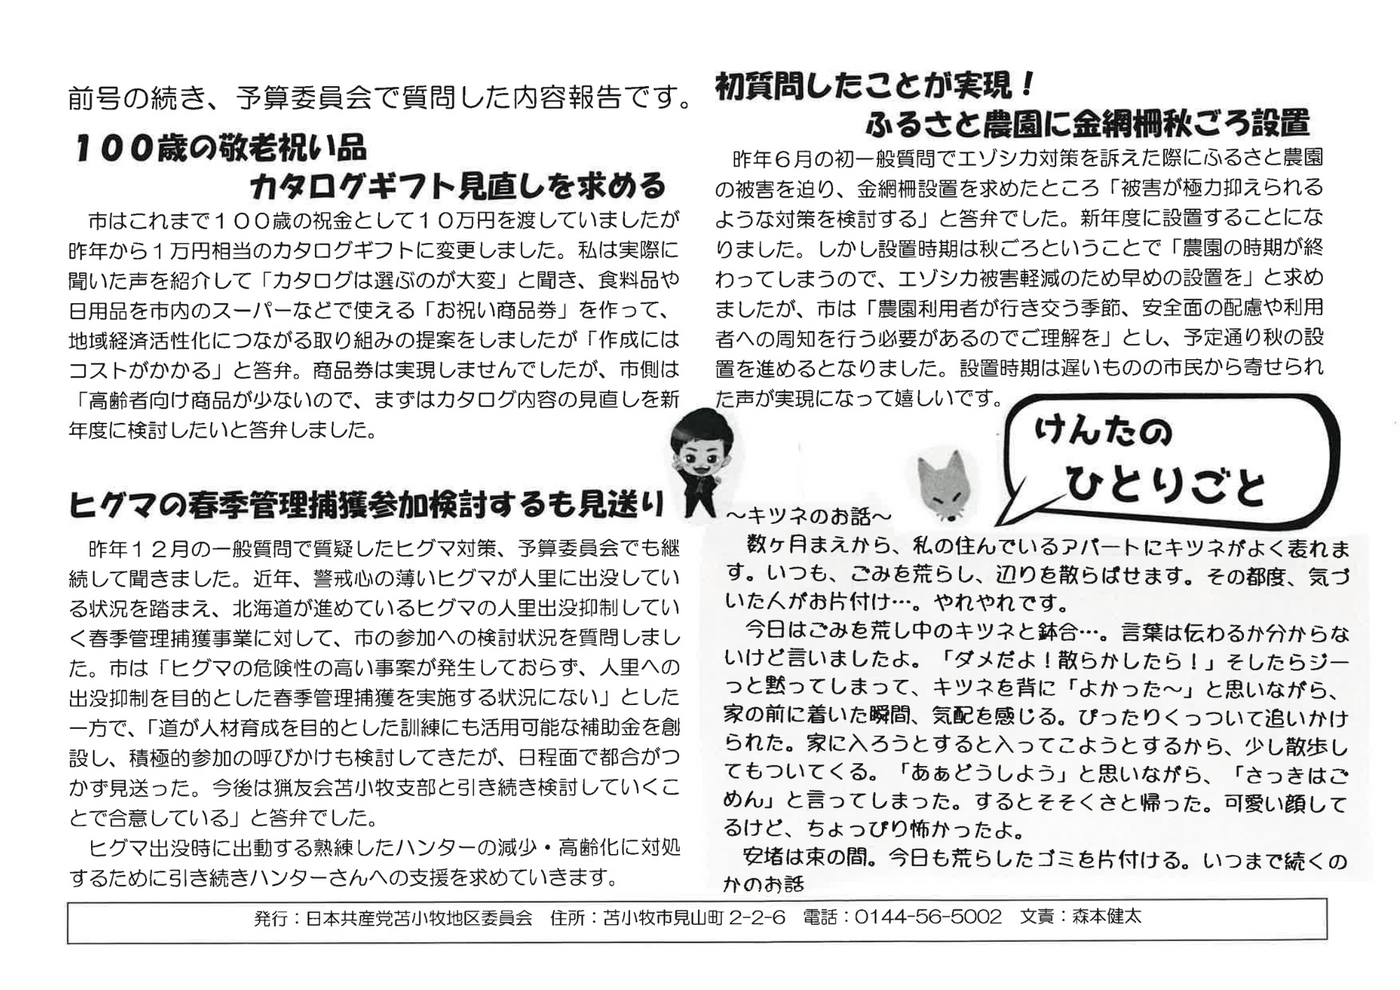 前号の続き、予算委員会で質問した内容報告です。
１００歳の敬老祝い品
カタログギフト見直しを求める
市はこれまで１００歳の祝金として１０万円を渡していましたが
昨年から１万円相当のカタログギフトに変更しました。私は実際に
聞いた声を紹介して「カタログは選ぶのが大変」と聞き、食料品や
日用品を市内のスーパーなどで使える「お祝い商品券」を作って、
地域経済活性化につながる取り組みの提案をしましたが「作成には
コストがかかる」と答弁。商品券は実現しませんでしたが、市側は
「高齢者向け商品が少ないので、まずはカタログ内容の見直しを新
年度に検討したいと答弁しました。
ヒグマの春季管理捕獲参加検討するも見送り
昨年１２月の一般質問で質疑したヒグマ対策、予算委員会でも継
続して聞きました。近年、警戒心の薄いヒグマが人里に出没してい
る状況を踏まえ、北海道が進めているヒグマの人里出没抑制してい
く春季管理捕獲事業に対して、市の参加への検討状況を質問しまし
た。市は「ヒグマの危険性の高い事案が発生しておらず、人里への
出没抑制を目的とした春季管理捕獲を実施する状況にない」とした
一方で、「道が人材育成を目的とした訓練にも活用可能な補助金を創
設し、積極的参加の呼びかけも検討してきたが、日程面で都合がつ
かず見送った。今後は猟友会苫小牧支部と引き続き検討していくこ
とで合意している」と答弁でした。
ヒグマ出没時に出動する熟練したハンターの減少・高齢化に対処
するために引き続きハンターさんへの支援を求めていきます。
初質問したことが実現！
ふるさと農園に金網柵秋ごろ設置
昨年６月の初一般質問でエゾシカ対策を訴えた際にふるさと農園
の被害を迫り、金網柵設置を求めたところ「被害が極力抑えられる
ような対策を検討する」と答弁でした。新年度に設置することにな
りました。しかし設置時期は秋ごろということで「農園の時期が終
わってしまうので、エゾシカ被害軽減のため早めの設置を」と求め
ましたが、市は「農園利用者が行き交う季節、安全面の配慮や利用
者への周知を行う必要があるのでご理解を」とし、予定通り秋の設
置を進めるとなりました。設置時期は遅いものの市民から寄せられ
た声が実現になって嬉しいです。
けんたの
ひとりごと
～キツネのお話～
数ヶ月まえから、私の住んでいるアパートにキツネがよく表れま
す。いつも、ごみを荒らし、辺りを散らばせます。その都度、気づ
いた人がお片付け…。やれやれです。
今日はごみを荒し中のキツネと鉢合…。言葉は伝わるか分からな
いけど言いましたよ。「ダメだよ！散らかしたら！」そしたらジー
っと黙ってしまって、キツネを背に「よかった～」と思いながら、
家の前に着いた瞬間、気配を感じる。ぴったりくっついて追いかけ
られた。家に入ろうとすると入ってこようとするから、少し散歩し
てもついてくる。「あぁどうしよう」と思いながら、「さっきはご
めん」と言ってしまった。するとそそくさと帰った。可愛い顔して
るけど、ちょっぴり怖かったよ。
安堵は束の間。今日も荒らしたゴミを片付ける。いつまで続くの
かのお話
発行：日本共産党苫小牧地区委員会　住所：苫小牧市見山町 2-2-6　電話：0144-56-5002　文責：森本健太